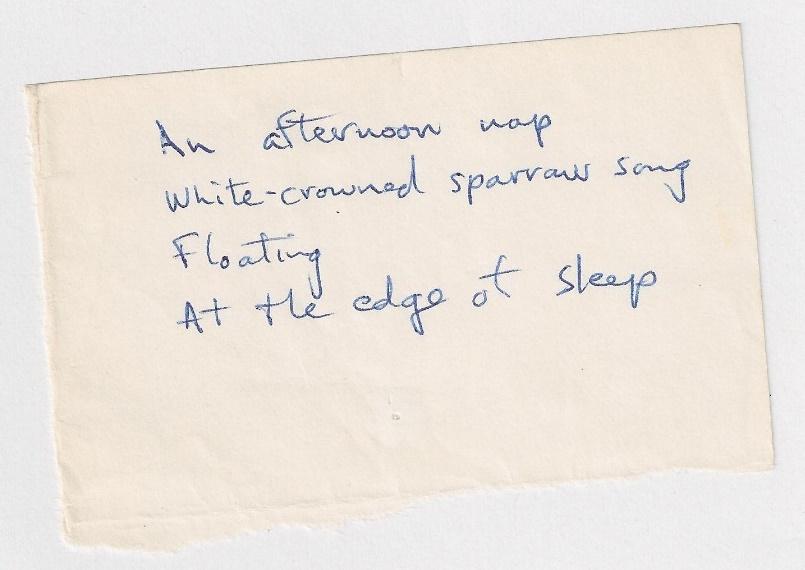 An afternoon nap
White-crowned sparrow song
Floating
At the edge of sleep